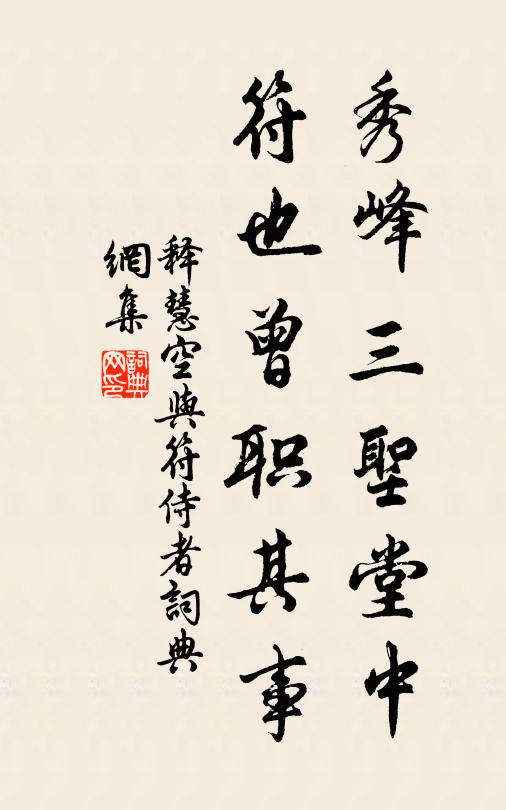 秀峰三聖堂中
符也曾职其事
释慧空與符侍者詞典
網集
詞典網印